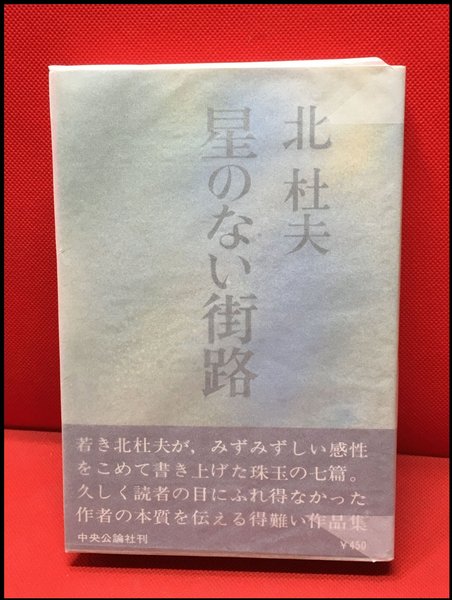 北 杜夫
星のない街路
若き北杜夫が、みずみずしい感性
をこめて書き上げた珠玉の七篇。
久しく読者の目にふれ得なかった
作者の本質を伝える得難い作品集
中央公論社刊
￥450